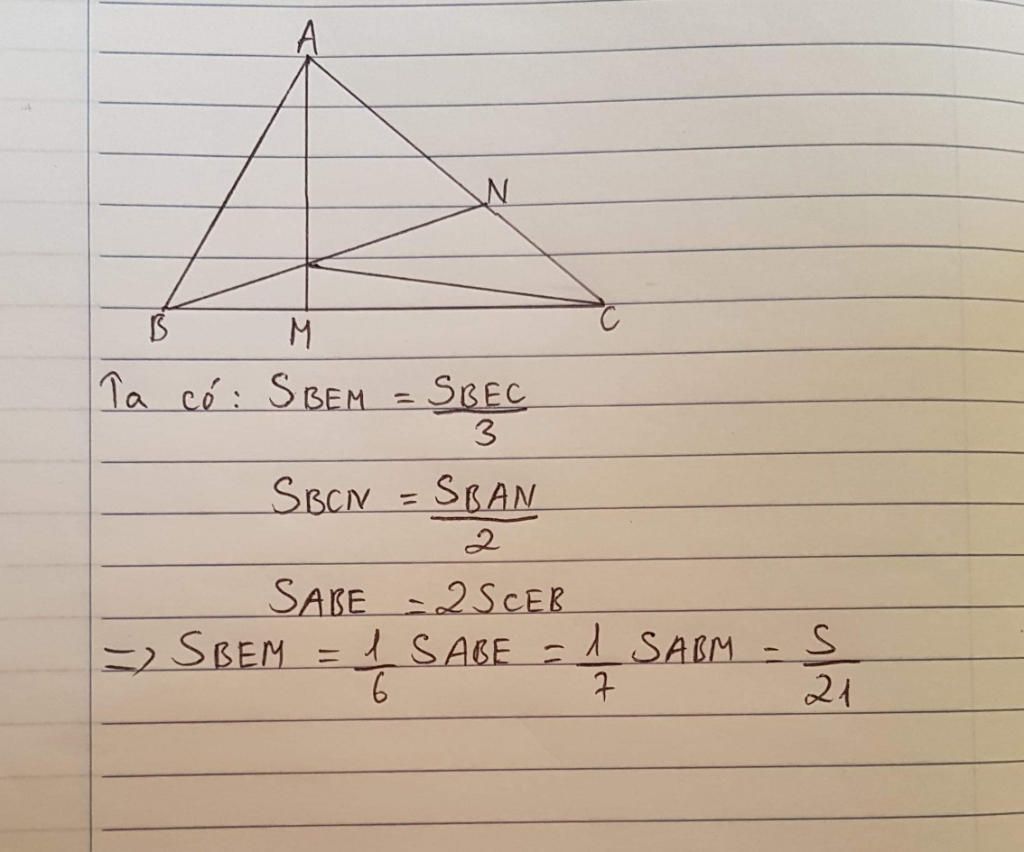 A
N
B M C
Ta có: SBEM = SBEC/3
SBCN = SBAN/2
SABE = 2SCEB
=> SBEM = 1/6 SABE = 1/7 SABM = S/21